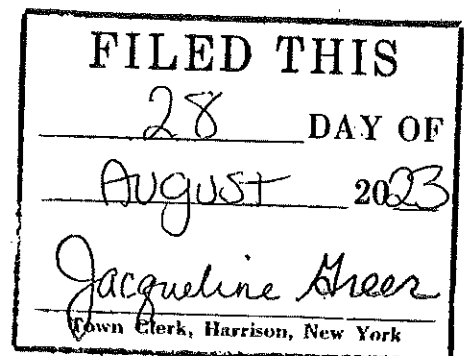 FILED THIS
28 DAY OF
August 2023
Jacqueline Greer
Town Clerk, Harrison, New York